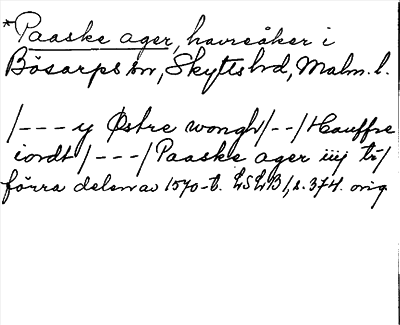 *Paaske ager, havreåker i
Bösarps sn, Skytts hd, Malm. l.
/--- y Østre wongh/--/Hauffre
iordt/---/Paaske ager iiij tr/
förra delen av 1570-t. LSLB1, s. 374. orig